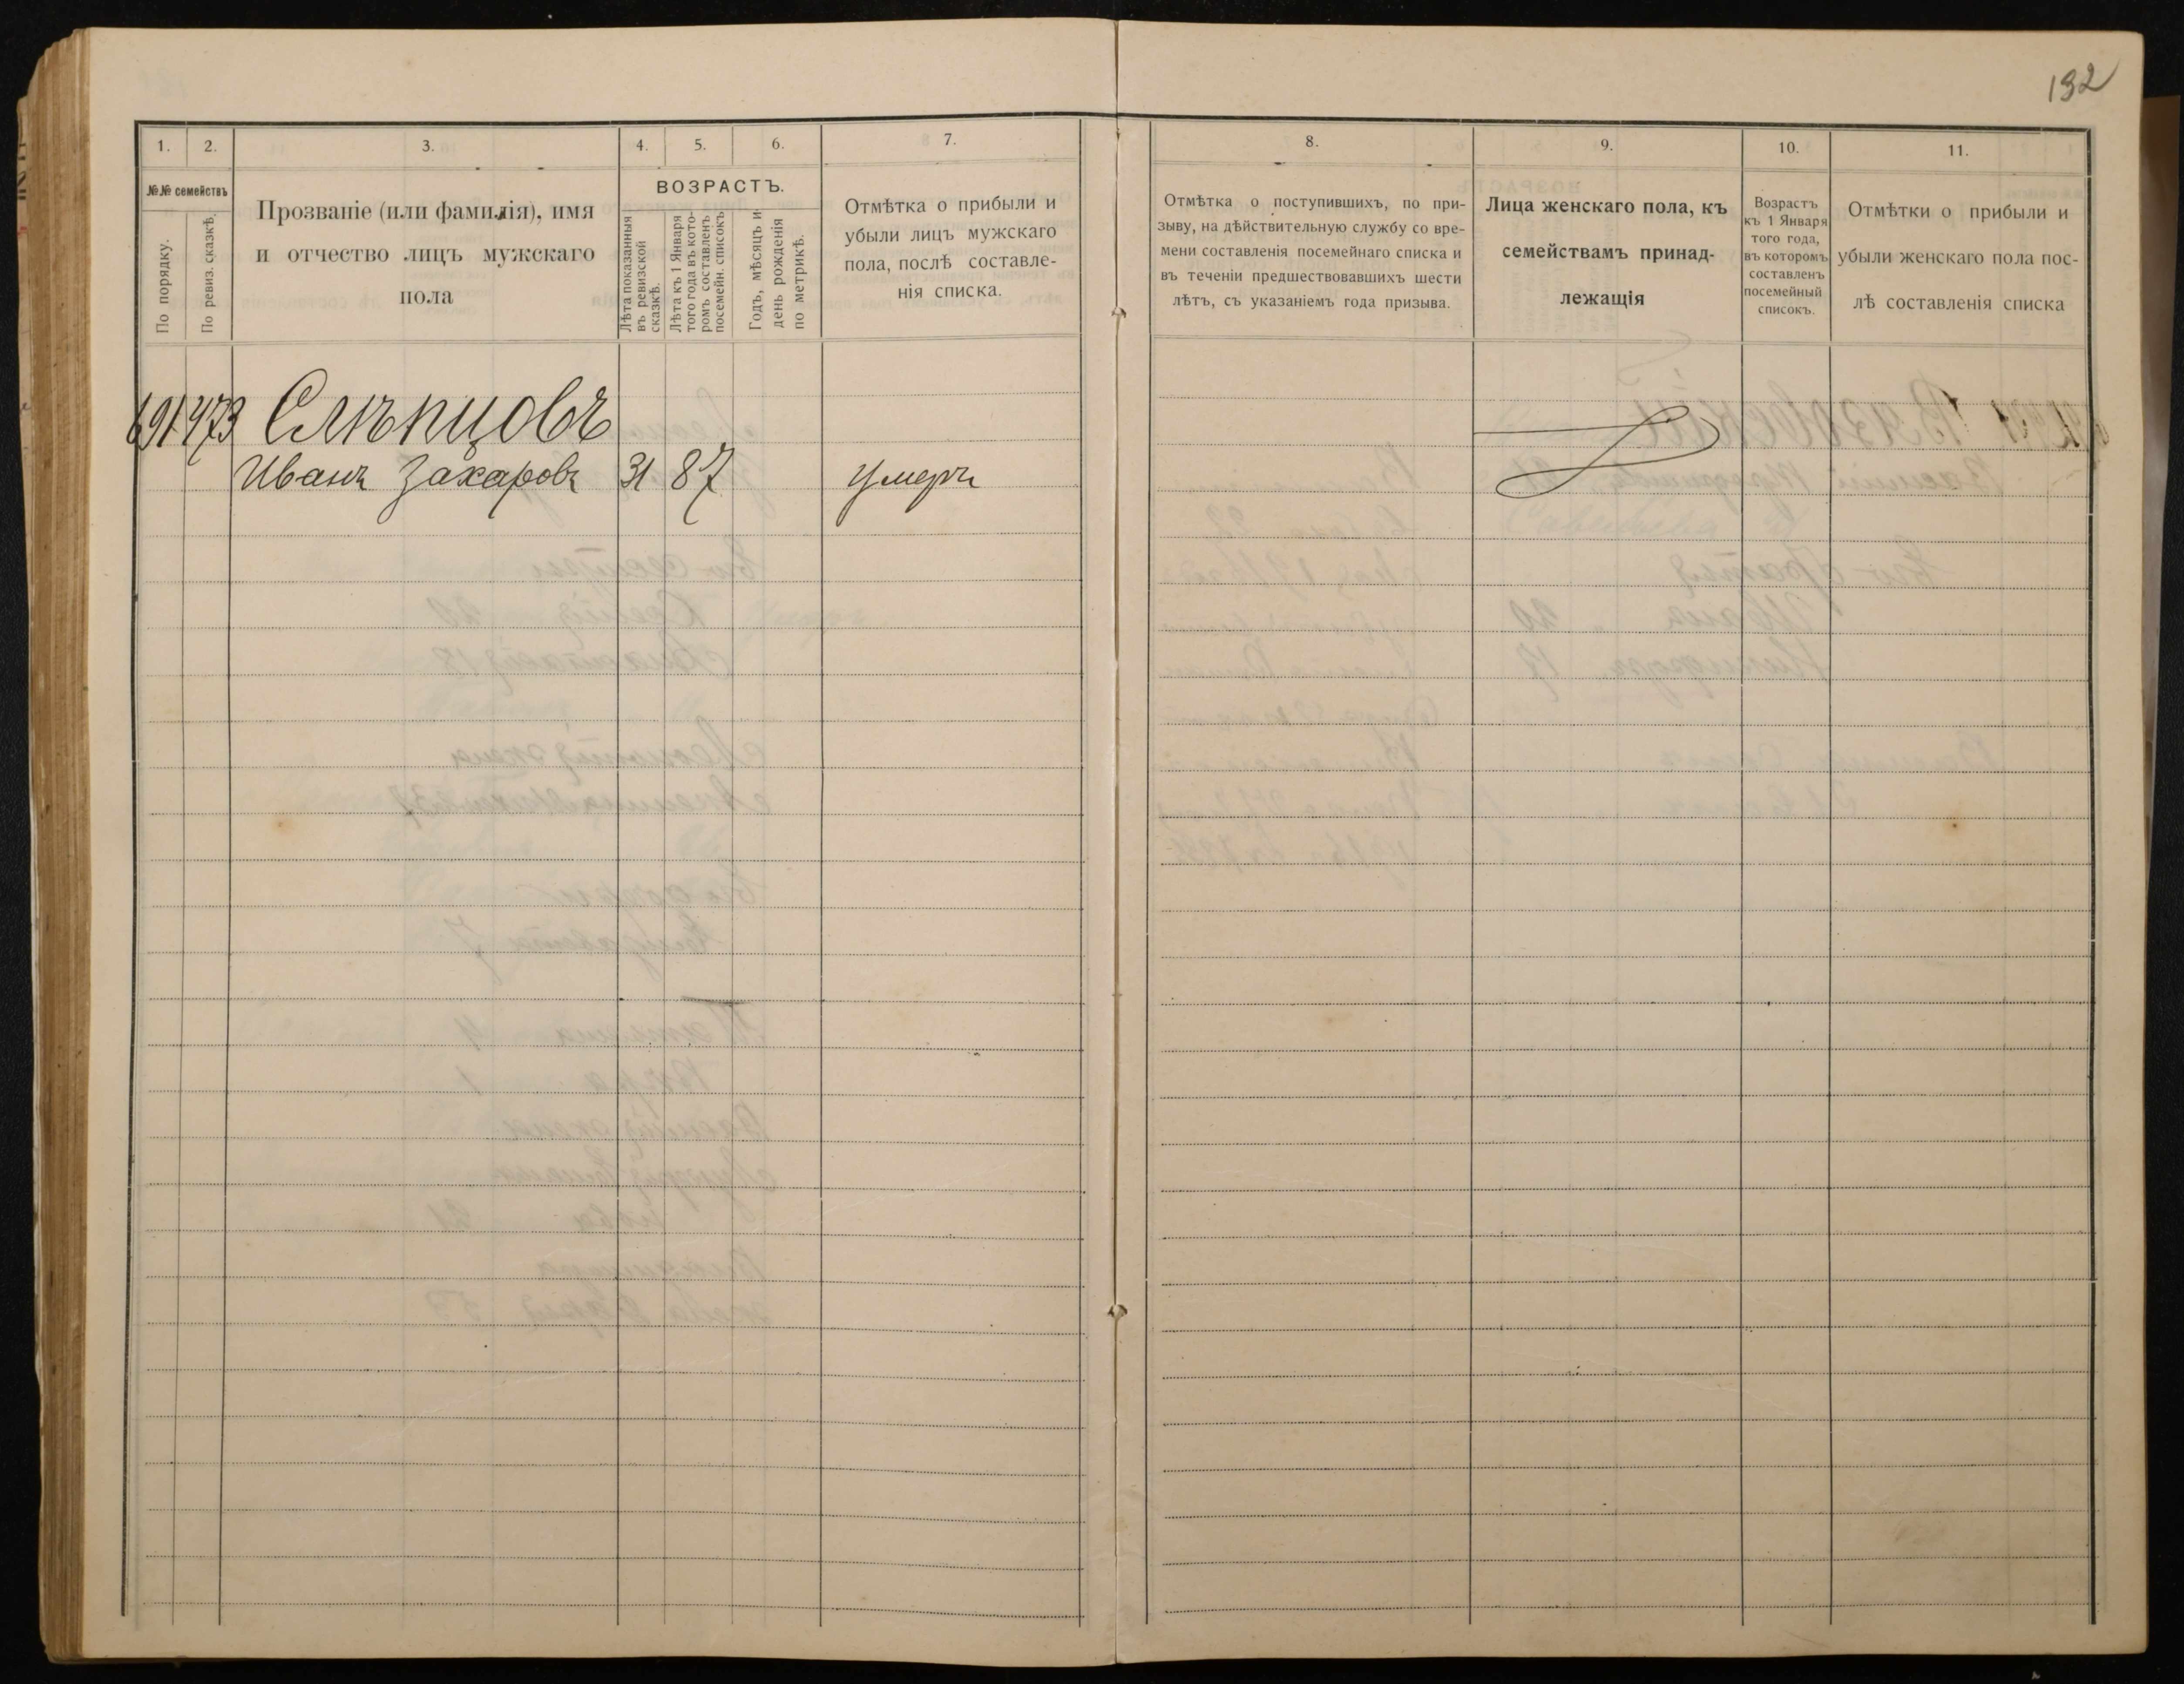 132
1. 2. 3. 4. 5. 6. 7.
№№ семействъ
По порядку.
По ревиз. сказкѣ.
Прозваніе (или фамилія), имя
и отчество лицъ мужскаго
пола
ВОЗРАСТЪ.
Лѣта показанныя
въ ревизской
сказкѣ.
Лѣта къ 1 Января
того года въ кото-
ромъ составленъ
посемейн. списокъ
Годъ, мѣсяцъ и
день рожденія
по метрикѣ.
Отмѣтка о прибыли и
убыли лицъ мужскаго
пола, послѣ составле-
нія списка.
691 473 Слѣпцовъ
Иванъ Захаровъ 31 87 умеръ
8. 9. 10. 11.
Отмѣтка о поступившихъ, по при-
зыву, на дѣйствительную службу со вре-
мени составленія посемейнаго списка и
въ теченіи предшествовавшихъ шести
лѣтъ, съ указаніемъ года призыва.
Лица женскаго пола, къ
семействамъ принад-
лежащія
Возрастъ
къ 1 Января
того года,
въ которомъ
составленъ
посемейный
списокъ.
Отмѣтки о прибыли и
убыли женскаго пола пос-
лѣ составленія списка